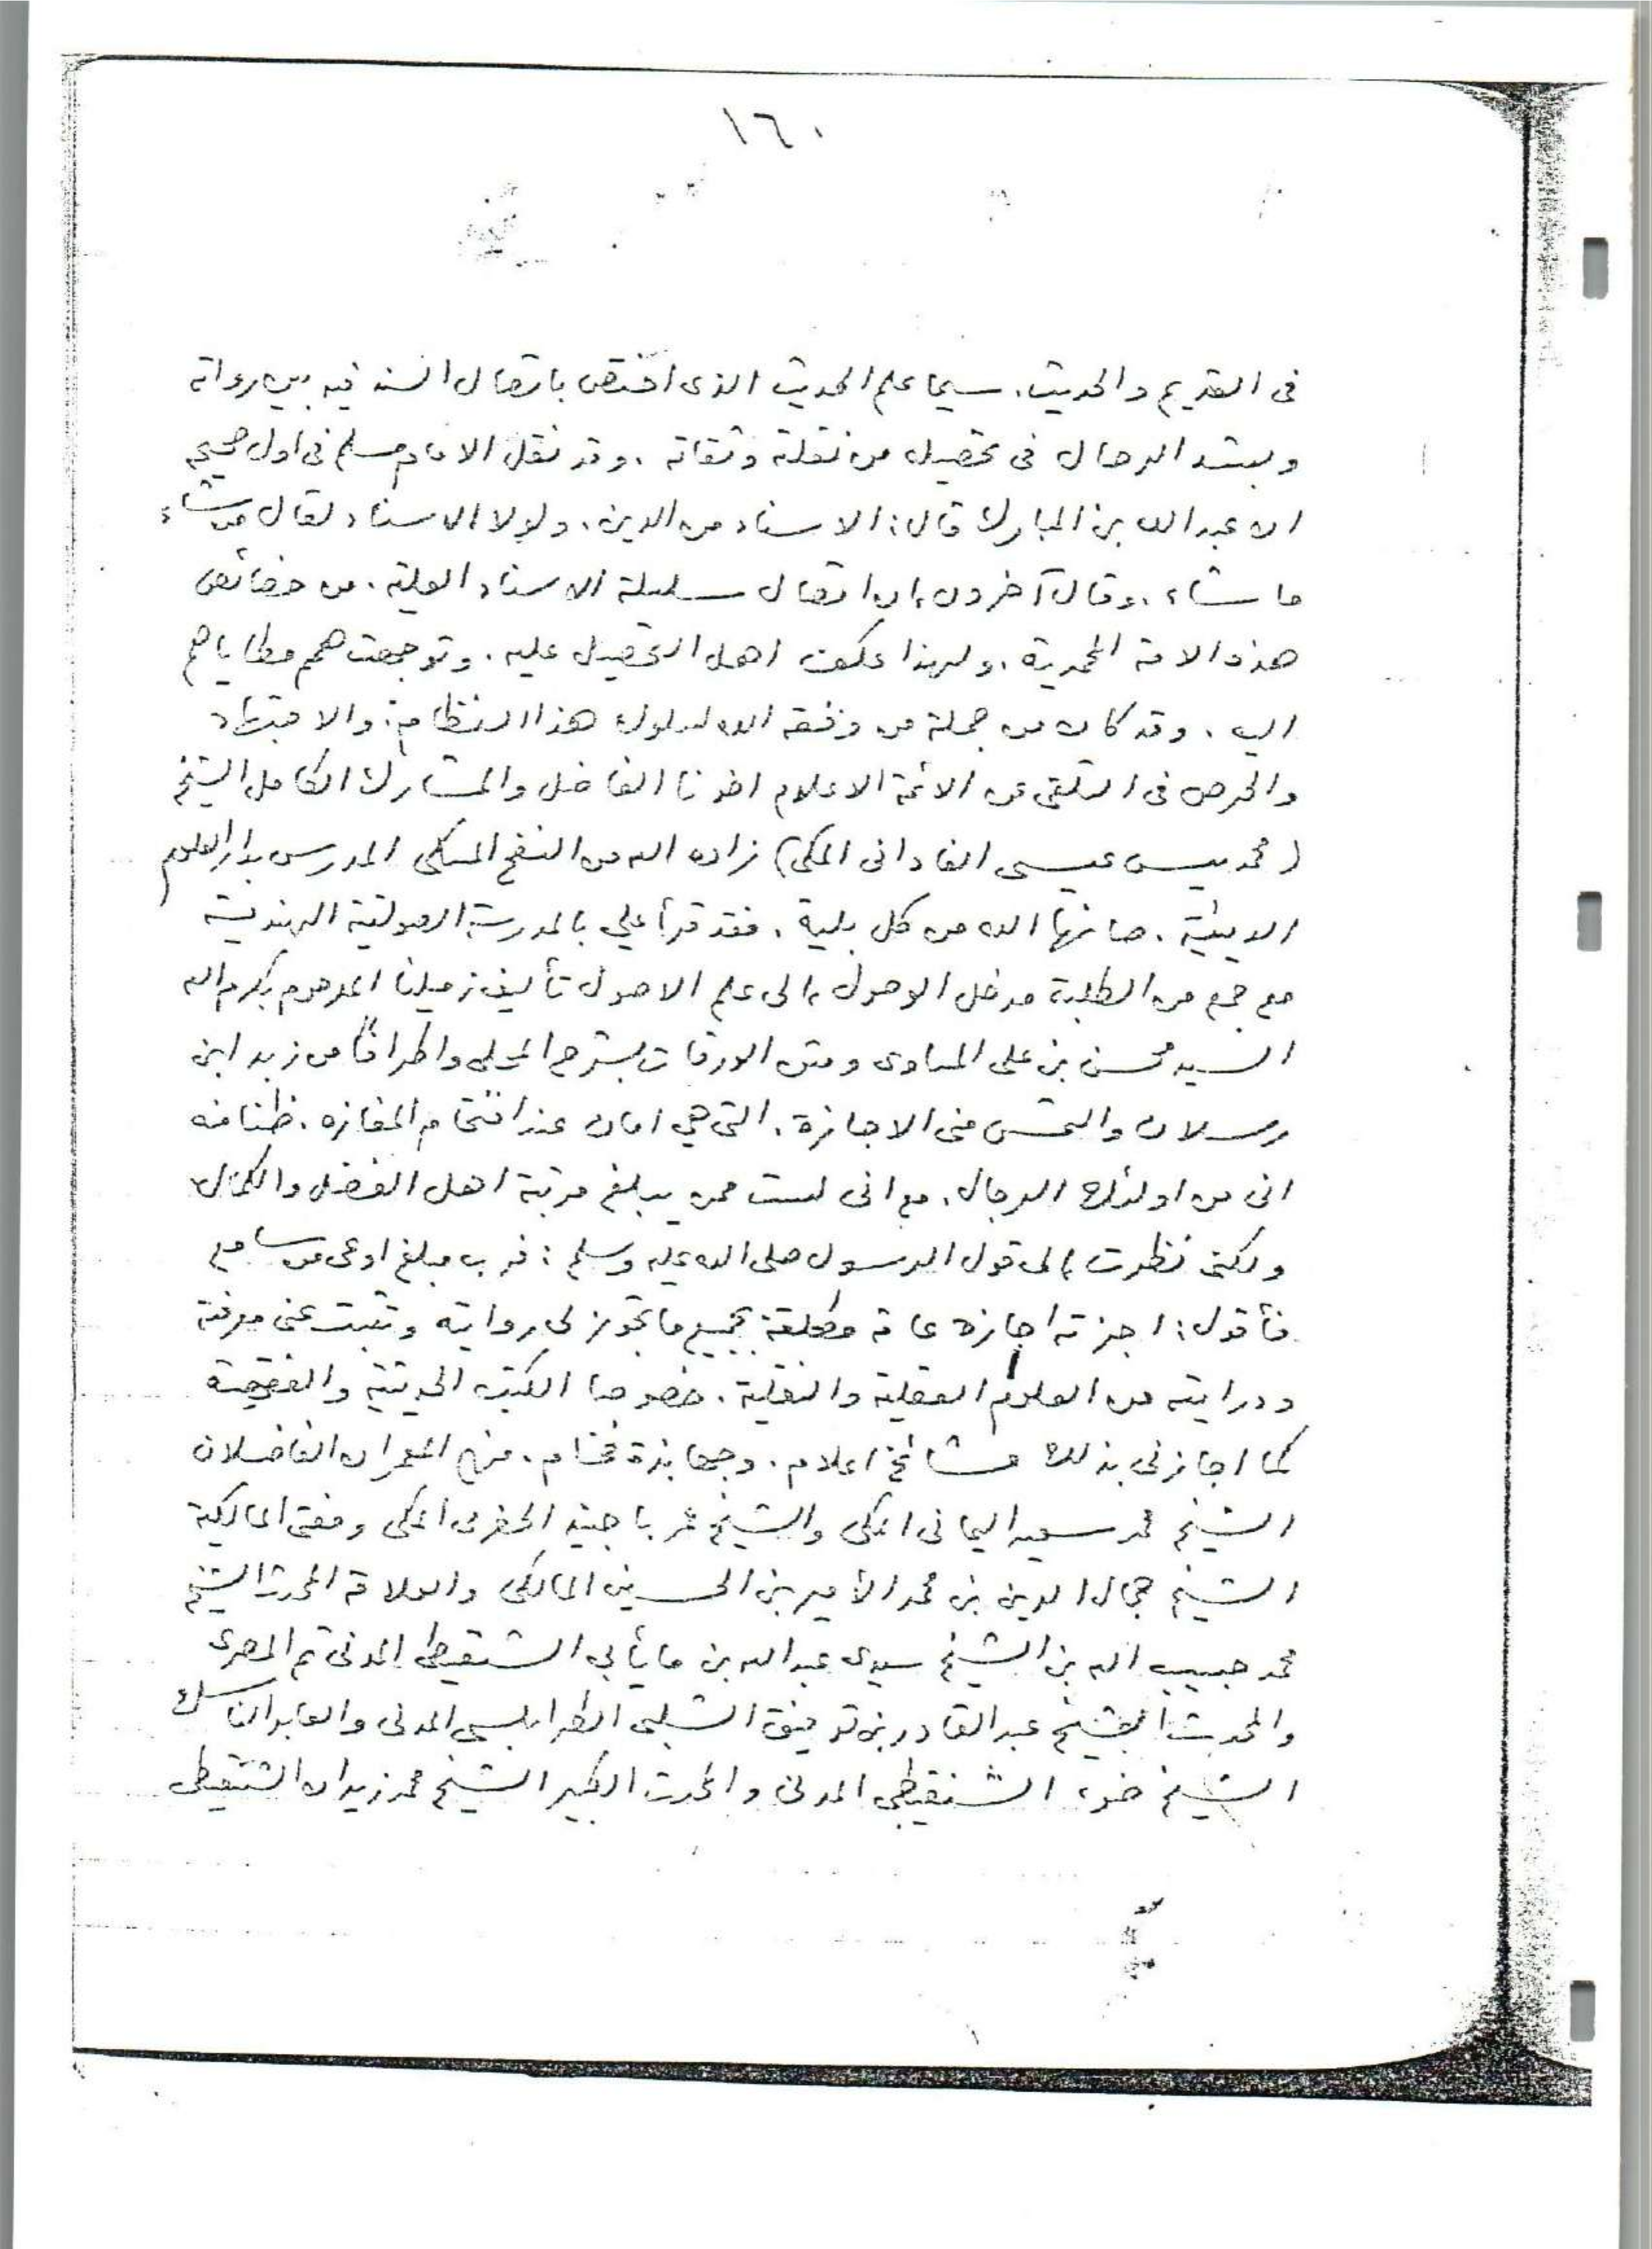 ١٦٠
فى القديم والحديث. سيما علم الحديث الذى اختص باتصال السند فيه بين رواته
ويشد الرحال فى تحصيل من نقلة وثقاته. وقد نقل الامام مسلم فى اول صحيحه
ان عبد الله بن المبارك قال: الاسناد من الدين. ولولا الاسناد لقال من شاء
ما شاء. وقال آخرون إن اتصال سلسلة الاسناد العلية. من خصائص
هذه الامة المحمدية. ولهذا عكف اهل التحصيل عليه. وتوجهت همم مطاياهم
اليه. وقد كان من جملة من وفقه الله لسلوك هذا النظام. والاجتهاد
والحرص فى التلقى عن الائمة الاعلام اخونا الفاضل والمشارك الكامل الشيخ
(محمد يس عيسى الفادانى المكى) زاده الله من النفح المسكى المدرس بدار العلوم
الدينية. صانها الله من كل بلية. فقد قرأ علي بالمدرسة الصولتية الهندية
مع جمع من الطلبة مدخل الوصول إلى علم الاصول تأليف زميلنا المرحوم بكرم الله
السيد محسن بن على المساوى ومتن الورقات بشرح المحلى واطرافا من زبد ابن
رسلان والتمس منى الاجازة. التى هي امان عند اقتحام المفازه. ظنا منه
انى من اولئك الرجال. مع انى لست ممن يبلغ مرتبة اهل الفضل والكمال
ولكنى نظرت إلى قول الرسول صلى الله عليه وسلم: فرب مبلغ اوعى من سامع
فأقول: اجزته اجازة عامة مطلقة بجميع ما تجوز لى روايته وتثبت عنى معرفته
ودرايته من العلوم العقلية والنقلية. خصوصا الكتب الحديثية والفقهية
كما اجازنى بذلك مشائخ اعلام. وجهابذة فخام. منهم المعمران الفاضلان
الشيخ محمد سعيد اليمانى المكى والشيخ عمر باجنيد الحضرمى المكى ومفتى المالكية
الشيخ جمال الدين بن محمد الأمير بن الحسين المالكى والعلامة المحدث الشيخ
محمد حبيب الله بن الشيخ سيدى عبد الله بن مايأبى الشنقيطى المدنى ثم المصرى
والمحدث الشيخ عبد القادر بن توفيق الشلبى الطرابلسى المدنى والعابد الناسك
الشيخ خضر الشنقيطى المدنى والمحدث الكبير الشيخ محمد زيدان الشنقيطى